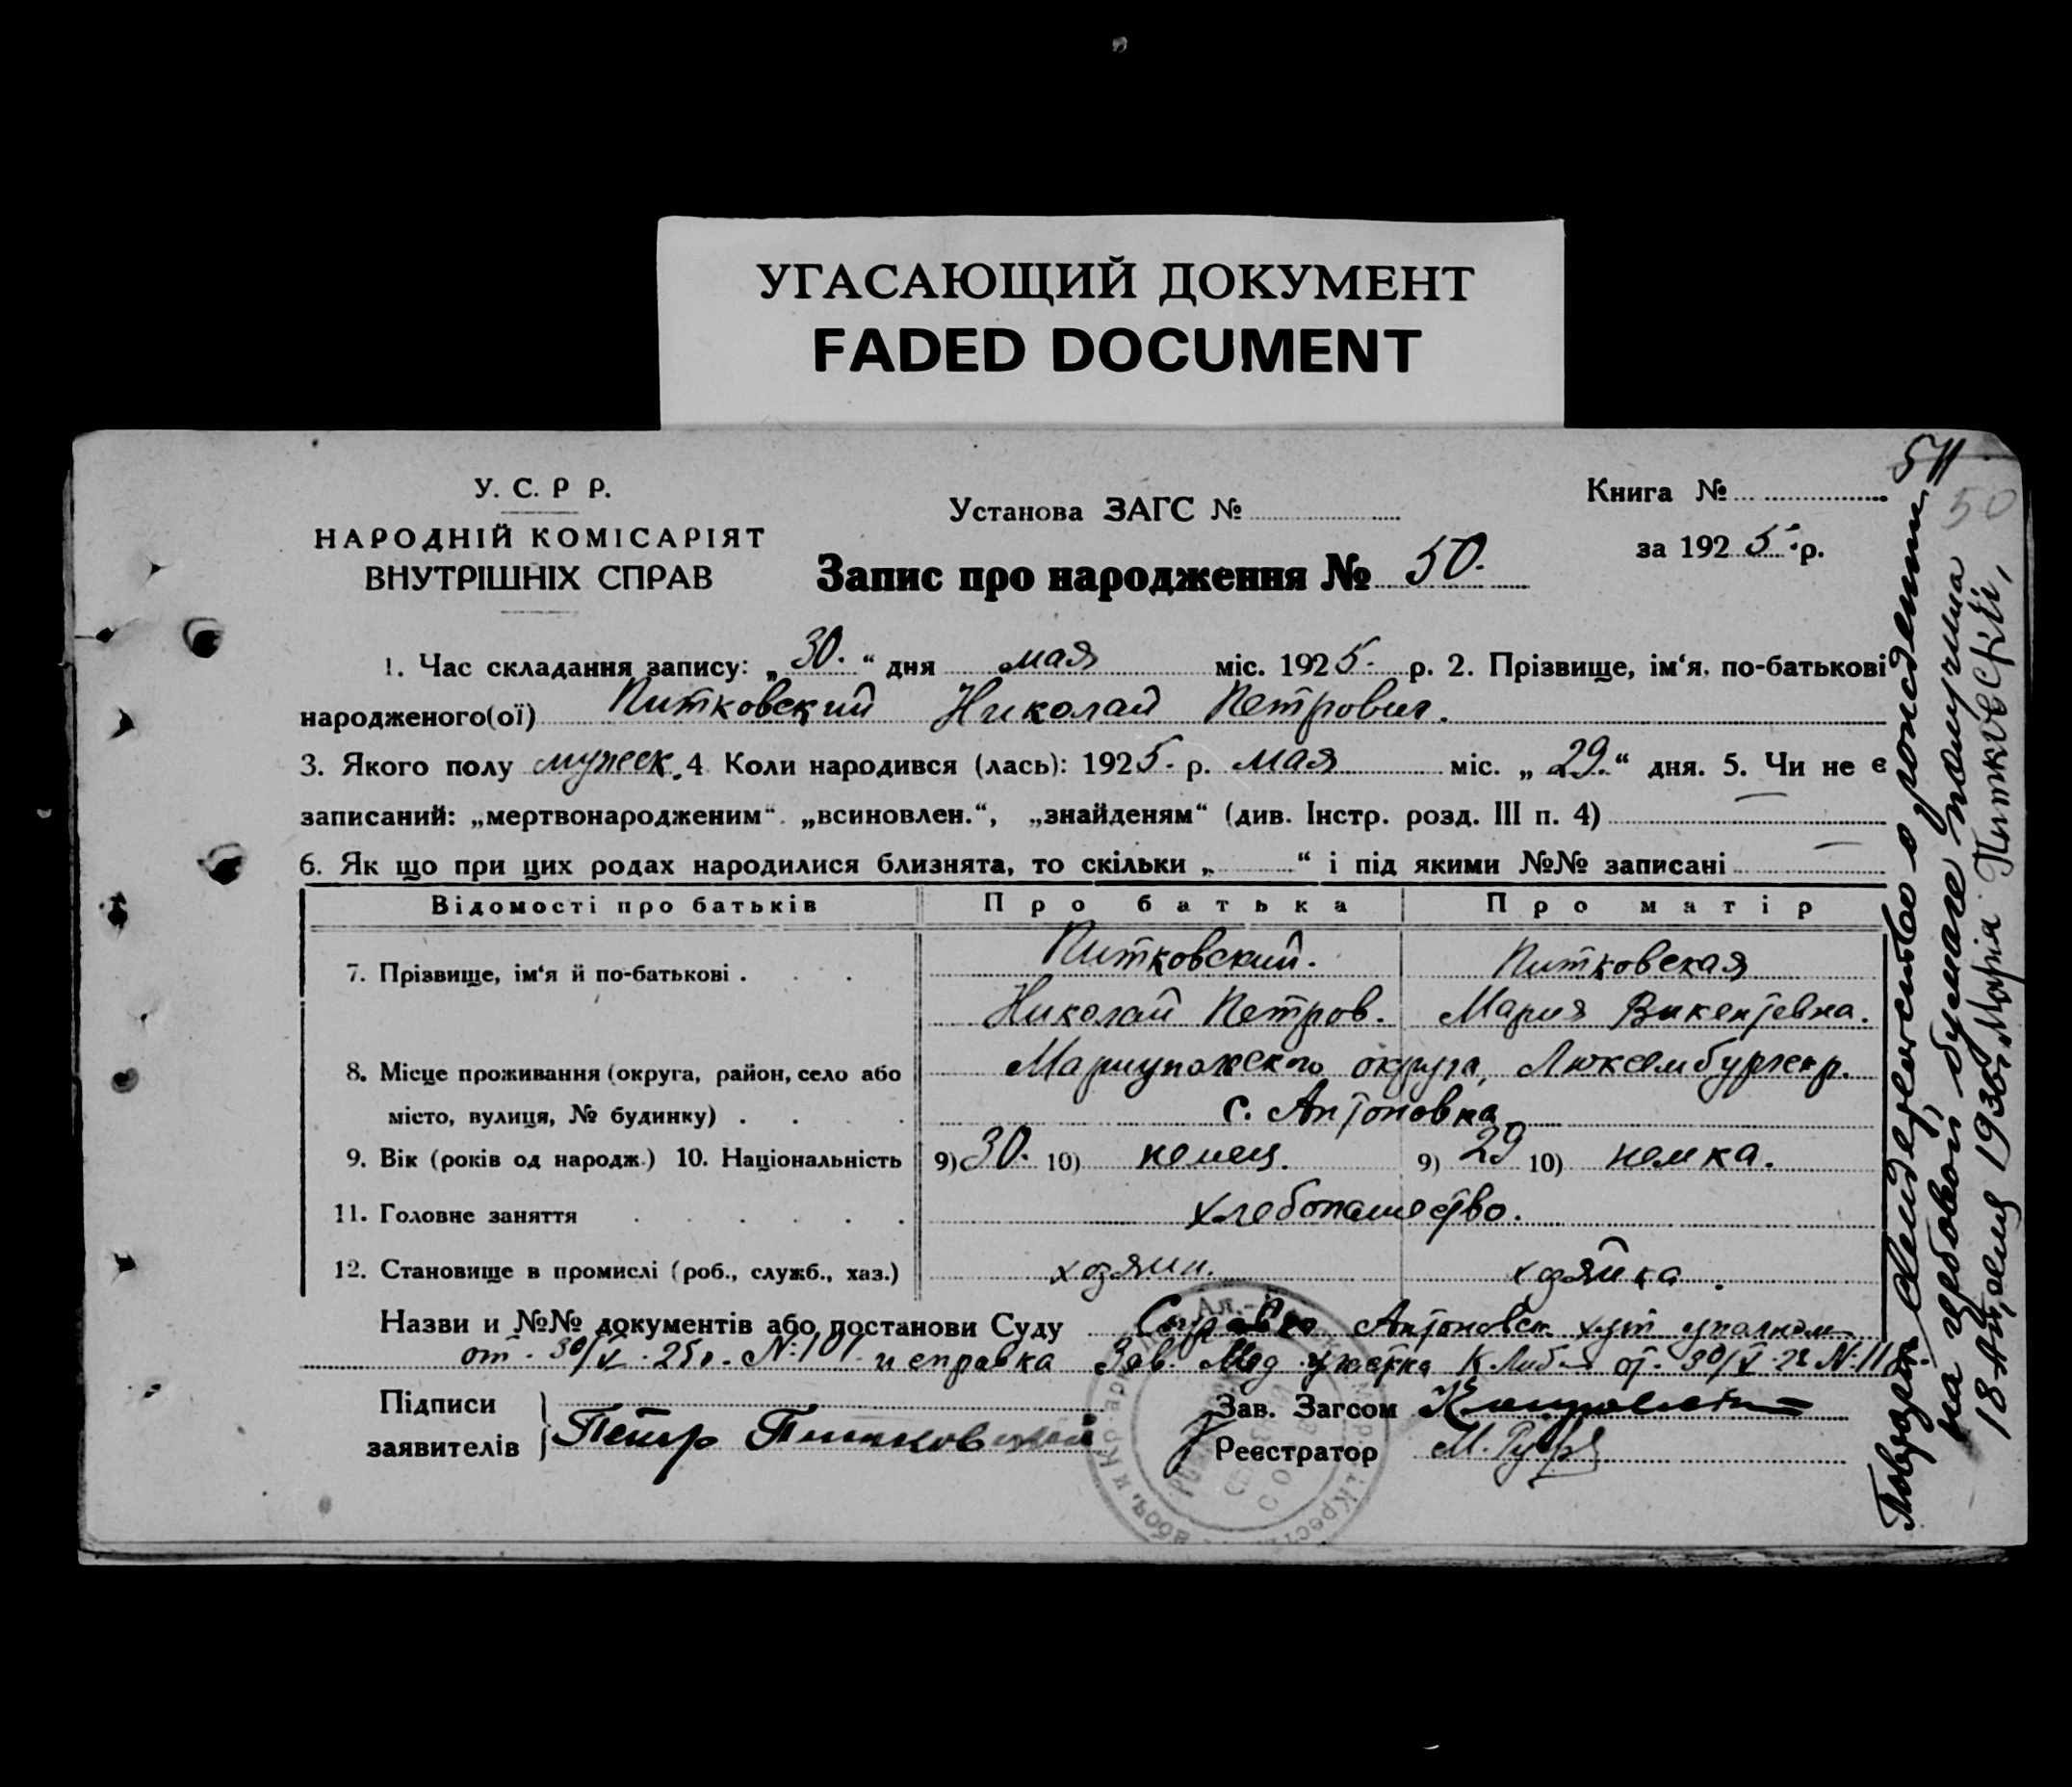 УГАСАЮЩИЙ ДОКУМЕНТ
FADED DOCUMENT
У. С. Р Р.
НАРОДНІЙ КОМІСАРІЯТ
ВНУТРІШНІХ СПРАВ
Установа ЗАГС №
Книга №
за 1925 р.
50
Запис про народження № 50.
1. Час складання запису: „30.“ дня мая міс. 1925. р. 2. Прізвище, ім‘я, по-батькові
народженого(ої) Питковский Николай Петрович.
3. Якого полу мужск. 4 Коли народився (лась): 1925. р. мая міс. „29.“ дня. 5. Чи не є
записаний: „мертвонародженим“. „всиновлен.“, „знайденям“ (див. Інстр. розд. III п. 4)
6. Як що при цих родах народилися близнята, то скільки „ “ і під якими №№ записані
Відомості про батьків Про батька Про матір
7. Прізвище, ім‘я й по-батькові . Питковский. Питковская
Николай Петров. Мария Викентьевна.
8. Місце проживання (округа, район, село або Мариупольского округа, Люксембургск р.
місто, вулиця, № будинку) . с. Антоновка
9. Вік (років од народж.) 10. Національність 9) 30. 10) немец. 9) 29 10) немка.
11. Головне заняття хлебопашество.
12. Становище в промислі (роб., служб., хаз.) хозяин. хозяйка.
Назви и №№ документів або постанови Суду Справка Антоновск. хут уполном
от 30/V 25 г. № 101 и справка Зав. Мед участка от 30/V
Підписи
заявителів Петр Питковский
Зав. Загсом
Реєстратор М.
Повторн. свидетельство о рождении
на гербовой бумаге получила
18 1936 г. Марія Питковскій,